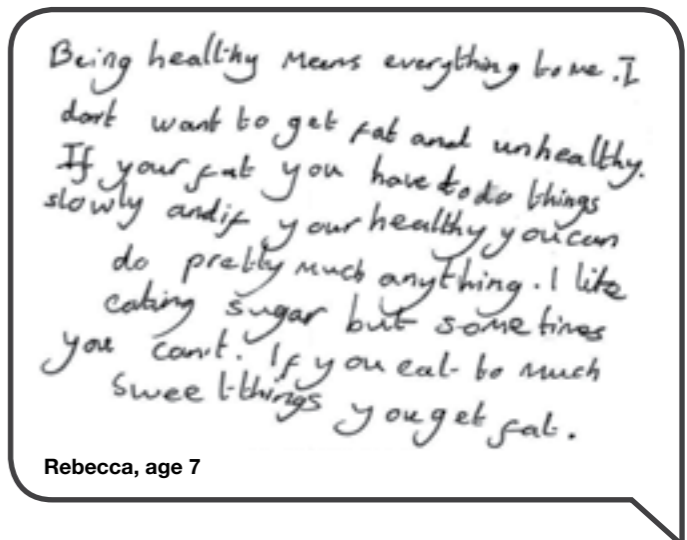 Being healthy means everything to me. I
dont want to get fat and unhealthy.
If your fat you have to do things
slowly and if your healthy you can
do pretty much anything. I like
eating sugar but sometimes
you can't. If you eat to much
sweet things you get fat.
Rebecca, age 7